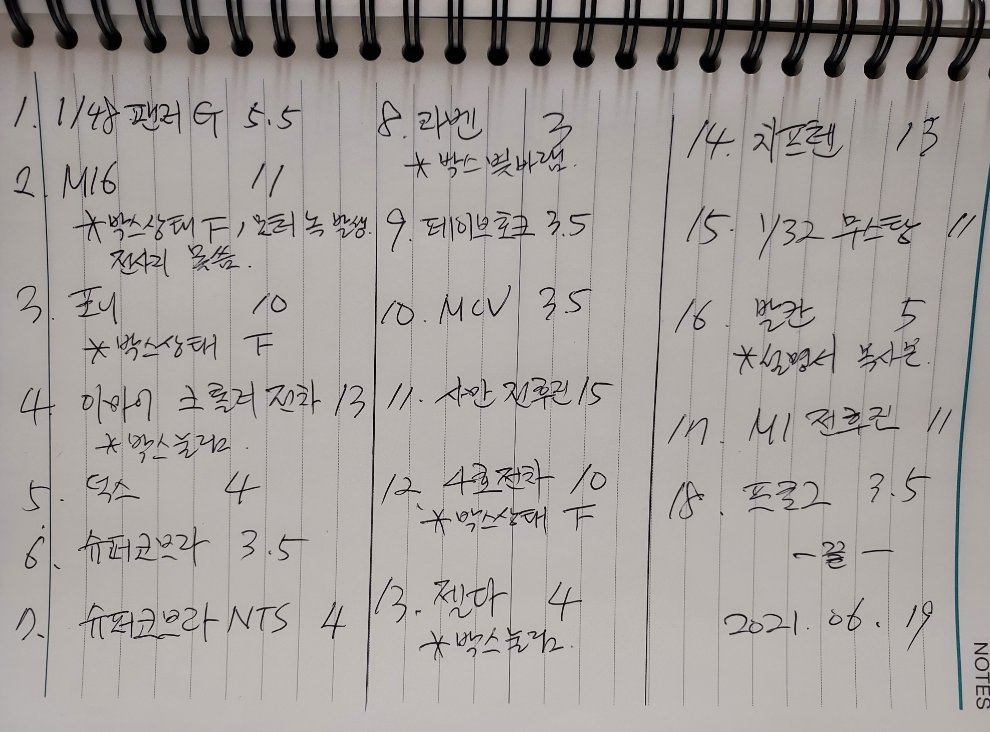 1. 1/48 팬터 G 5.5
2. M16 11
*박스상태 F, 모터 녹 발생.
전사리 못씀.
3. 포니 10
*박스상태 F
4. 이아이 크롤러 전차 13
*박스눌림.
5. 덕스 4
6. 슈퍼코브라 3.5
7. 슈퍼코브라 NTS 4
8. 라벤 3
*박스 빛바램.
9. 페이브호크 3.5
10. MCV 3.5
11. 샤만 전후권 15
12. 4호전차 10
*박스상태 F
13. 젤다 4
*박스눌림.
14. 치프텐 13
15. 1/32 무스탕 11
16. 발칸 5
*설명서 복사본.
17. M1 전후권 11
18. 프로그 3.5
-끝-
2021.06.19
NOTES